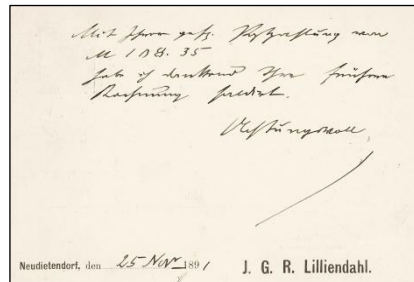 Mit Ihrer gefl. Postzahlung von
M 108. 35
habe ich dankend Ihre frühere
Rechnung saldirt.
Achtungsvoll
Neudietendorf, den 25 Nov 1891
J. G. R. Lilliendahl.